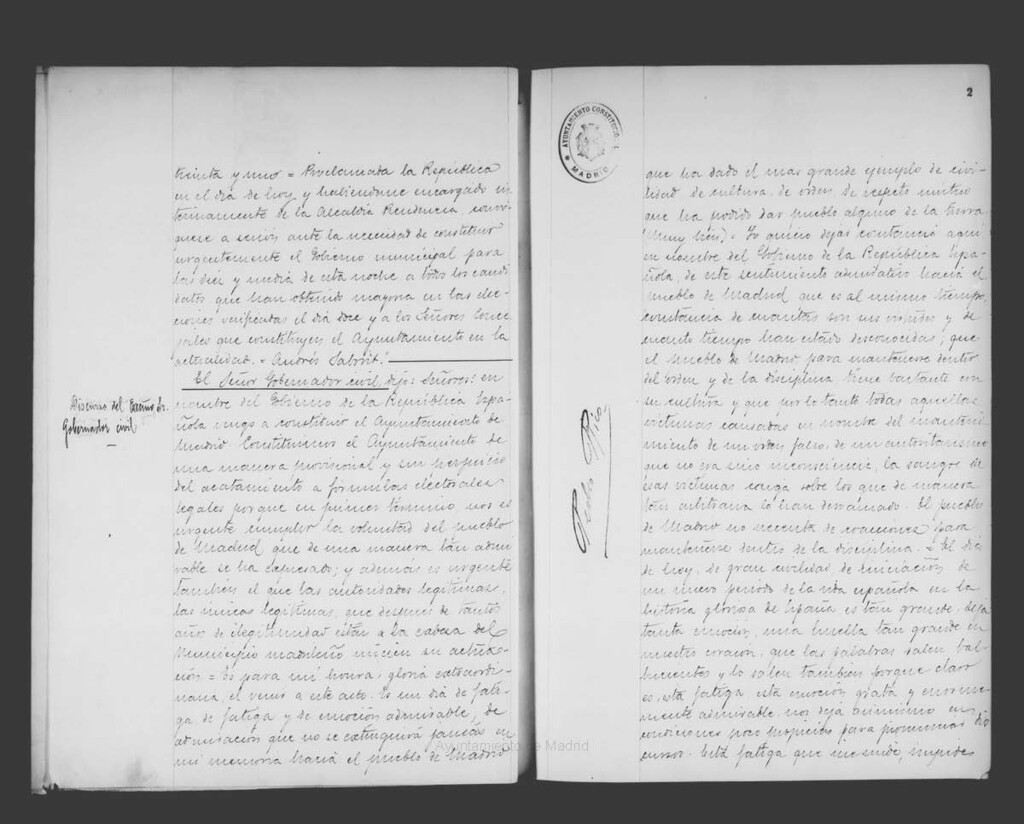 treinta y uno = Proclamada la República
en el día de hoy y habiéndome encargado in
terinamente de la Alcaldía Presidencia, convó
quese a sesión ante la necesidad de constituir
urgentemente el Gobierno municipal para
las diez y media de esta noche a todos los candi
datos que han obtenido mayoría en las elec
ciones verificadas el día doce y a los Señores Conce
jales que constituyen el Ayuntamiento en la
actualidad. = Andrés Saborit."
El Señor Gobernador civil, dijo: Señores: en
nombre del Gobierno de la República Espa
ñola vengo a constituir el Ayuntamiento de
Madrid. Constituimos el Ayuntamiento de
una manera provisional y sin perjuicio
del acatamiento a fórmulas electorales
legales porque en primer término nos es
urgente cumplir la voluntad del pueblo
de Madrid que de una manera tan admi
rable se ha expresado; y además es urgente
también el que las autoridades legítimas,
las únicas legítimas, que después de tantos
años de ilegitimidad están a la cabeza del
Municipio madrileño inicien su actua
ción = Es para mi honra, gloria extraordi
naria el venir a este acto. Es un día de fati-
ga de fatiga y de emoción admirable, de
admiración que no se extinguirá jamás en
mi memoria hacia el pueblo de Madrid
Discurso del Excmo Sr.
Gobernador civil
Ayuntamiento de Madrid
AYUNTAMIENTO CONSTITUCIONAL
MADRID
Pedro Rico
2
que ha dado el mas grande ejemplo de civi-
lidad de cultura, de orden, de respeto mutuo
que ha podido dar pueblo alguno de la tierra
(Muy bien) = Yo quiero dejar constancia aquí
en nombre del Gobierno de la República Espa
ñola, de este sentimiento admirativo hacia el
pueblo de Madrid que es al mismo tiempo,
constancia de cuantas son sus virtudes y de
cuanto tiempo han estado desconocidas; que
el pueblo de Madrid para mantenerse dentro
del orden y de la disciplina, tiene bastante con
su cultura y que por lo tanto todas aquellas
víctimas causadas en nombre del manteni
miento de un orden falso, de un autoritarismo
que no era sino inconsciencia, la sangre de
esas víctimas caiga sobre los que de manera
tan arbitraria lo han derramado. El pueblo
de Madrid no necesita de coacciones para
mantenerse dentro de la disciplina. = El día
de hoy, de gran civilidad de iniciación de
un nuevo periodo de la vida española en la
historia gloriosa de España, es tan grande, deja
tanta emoción, una huella tan grande en
nuestro corazón, que las palabras salen bal-
bucientes y lo salen también porque claro
es, esta fatiga, esta emoción grata y enorme-
mente admirable, nos deja asimismo en
condiciones poco propicias para pronunciar dis
cursos. Esta fatiga que me rinde, impide